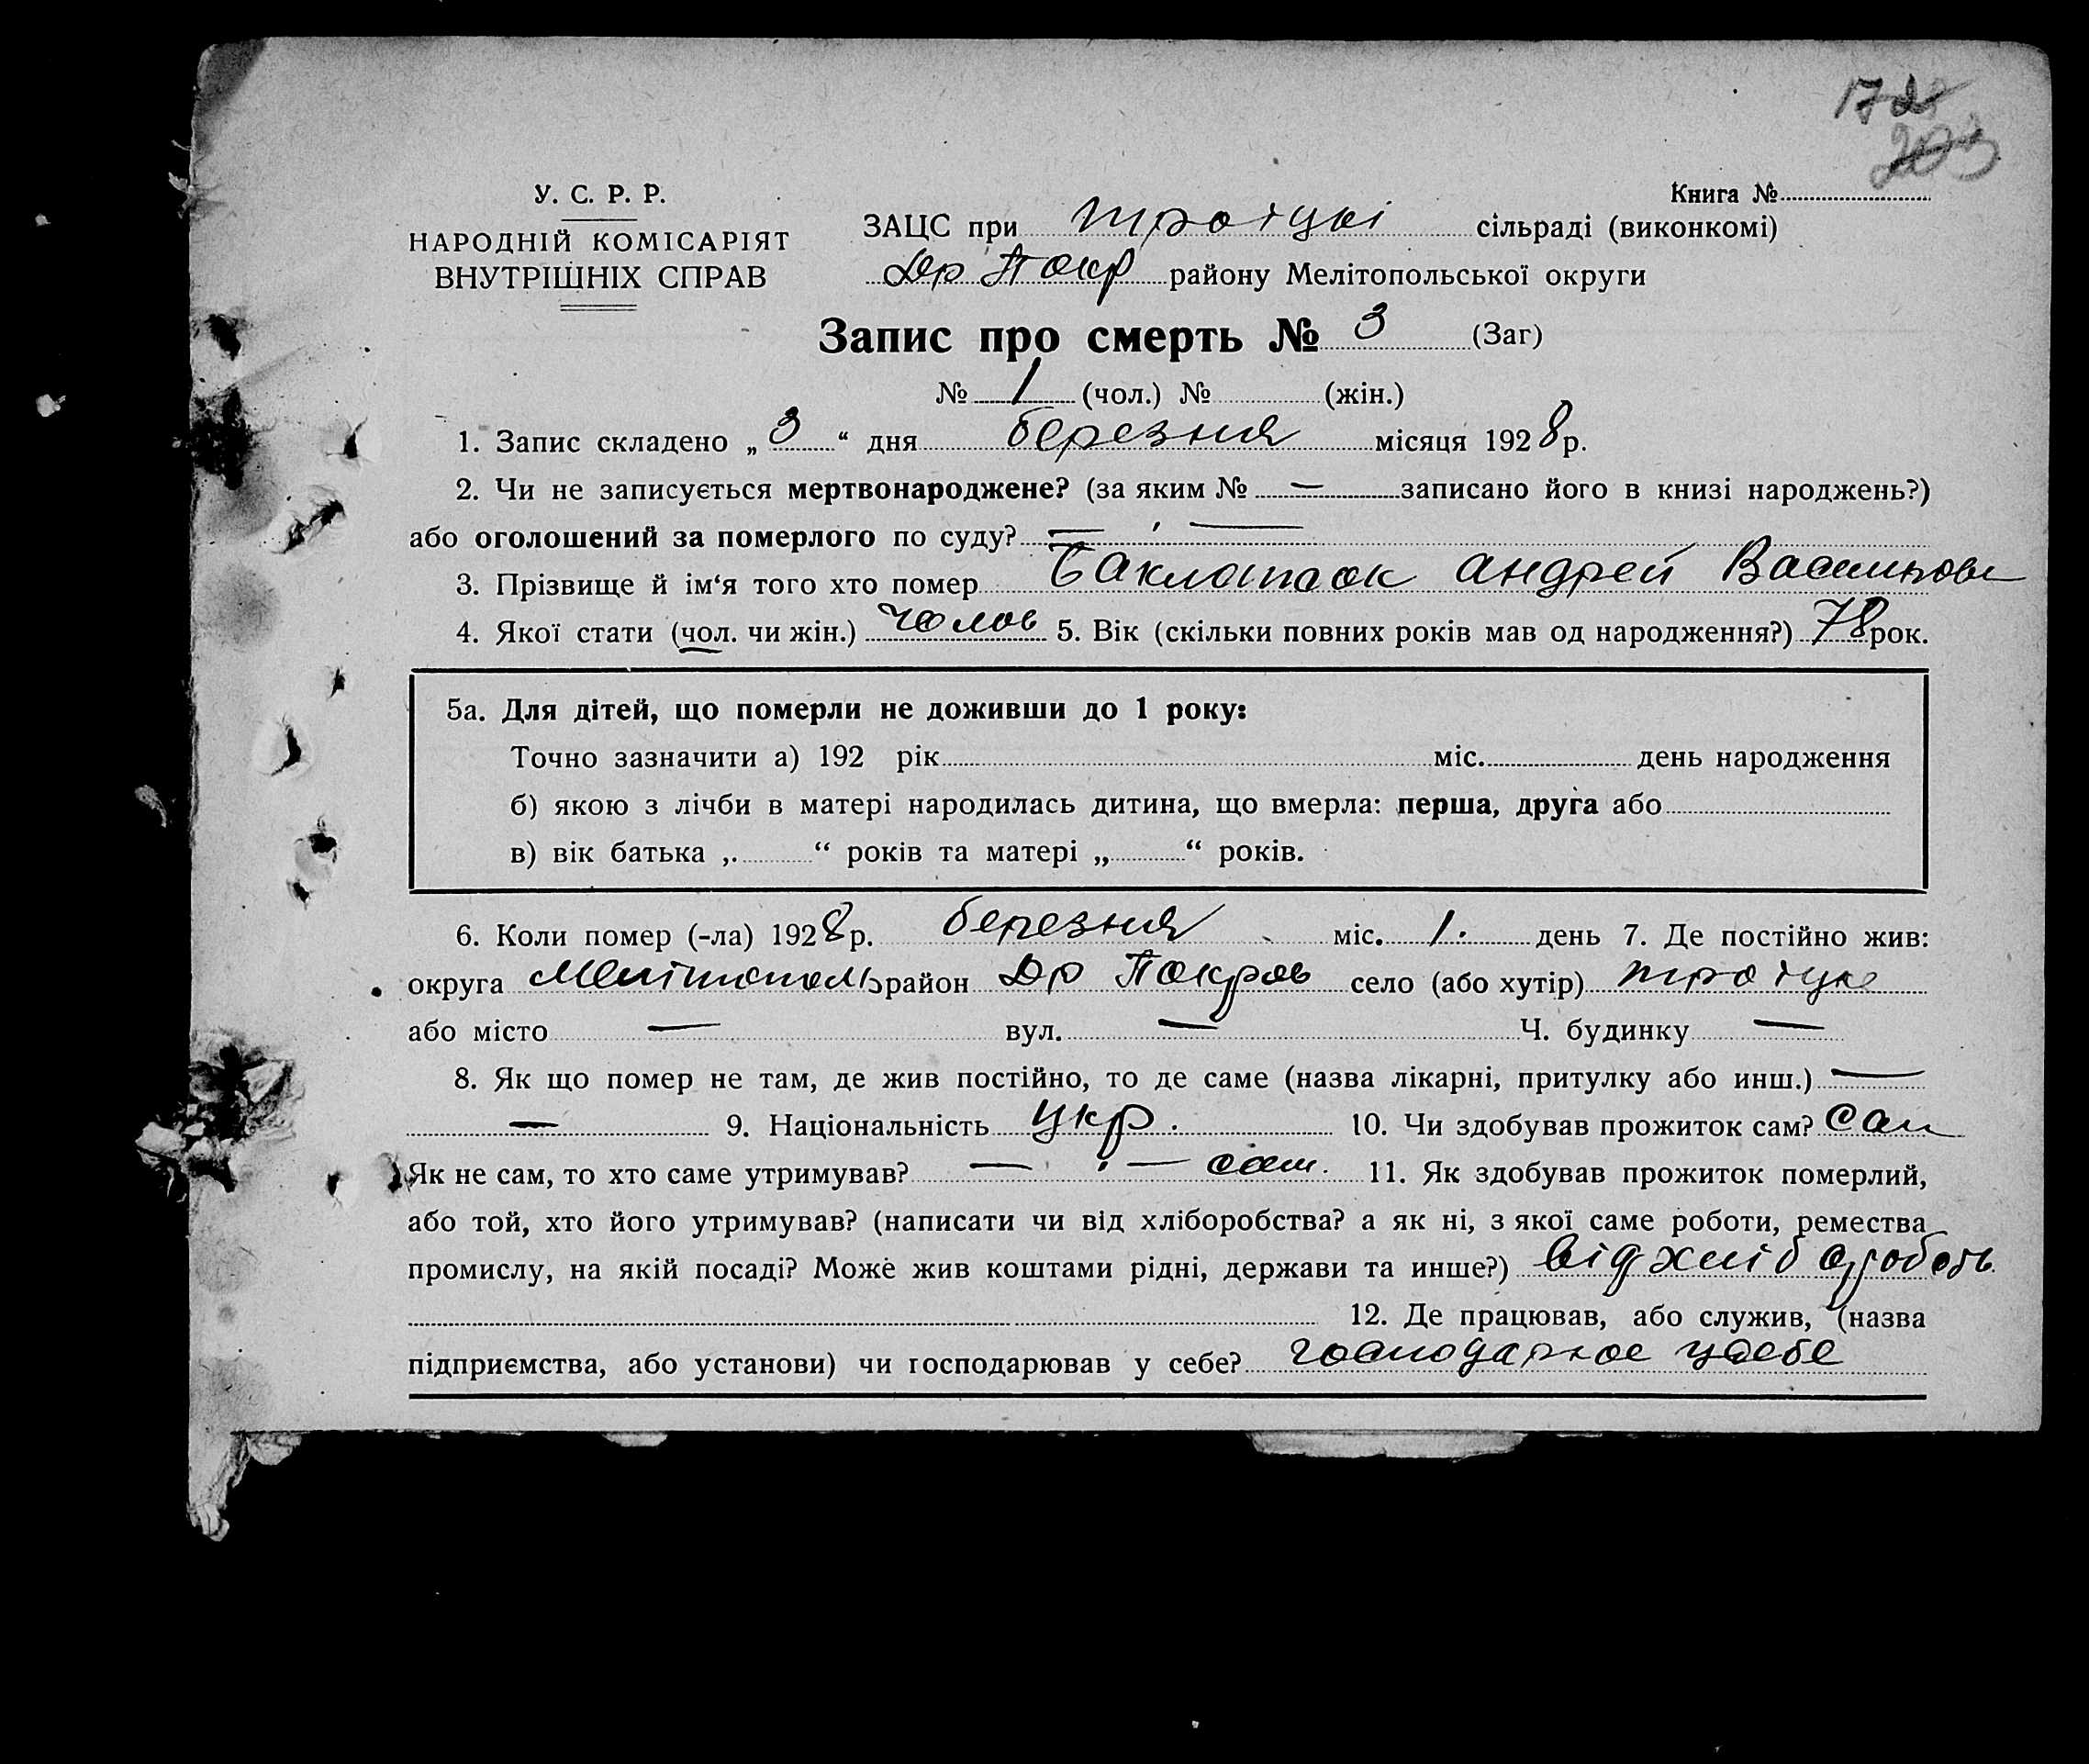 172
203
У. С. Р. Р.
Книга №
НАРОДНІЙ КОМІСАРІЯТ
ВНУТРІШНІХ СПРАВ
ЗАЦС при Троїцкі сільраді (виконкомі)
Др Покр району Мелітопольської округи
Запис про смерть № 3 (Заг)
№ 1 (чол.) № (жін.)
1. Запис складено „ 3 “ дня березня місяця 1928 р.
2. Чи не записується мертвонароджене? (за яким № — записано його в книзі народжень?)
або оголошений за померлого по суду? — —
3. Прізвище й ім‘я того хто помер Андрей
4. Якої стати (чол. чи жін.) чолов 5. Вік (скільки повних років мав од народження?) 78 рок.
5а. Для дітей, що померли не доживши до 1 року:
Точно зазначити а) 192 рік міс. день народження
б) якою з лічби в матері народилась дитина, що вмерла: перша, друга або
в) вік батька „ “ років та матері „ “ років.
6. Коли помер (-ла) 1928 р. березня міс. 1. день 7. Де постійно жив:
округа Мелітополь район Др Покров село (або хутір) Троїцке
або місто — вул. — Ч. будинку —
8. Як що помер не там, де жив постійно, то де саме (назва лікарні, притулку або инш.) —
— 9. Національність укр. 10. Чи здобував прожиток сам? сам
Як не сам, то хто саме утримував? — — сам. 11. Як здобував прожиток померлий,
або той, хто його утримував? (написати чи від хліборобства? а як ні, з якої саме роботи, ремества
промислу, на якій посаді? Може жив коштами рідні, держави та инше?) від хлібороб
12. Де працював, або служив, (назва
підприємства, або установи) чи господарював у себе? у себе